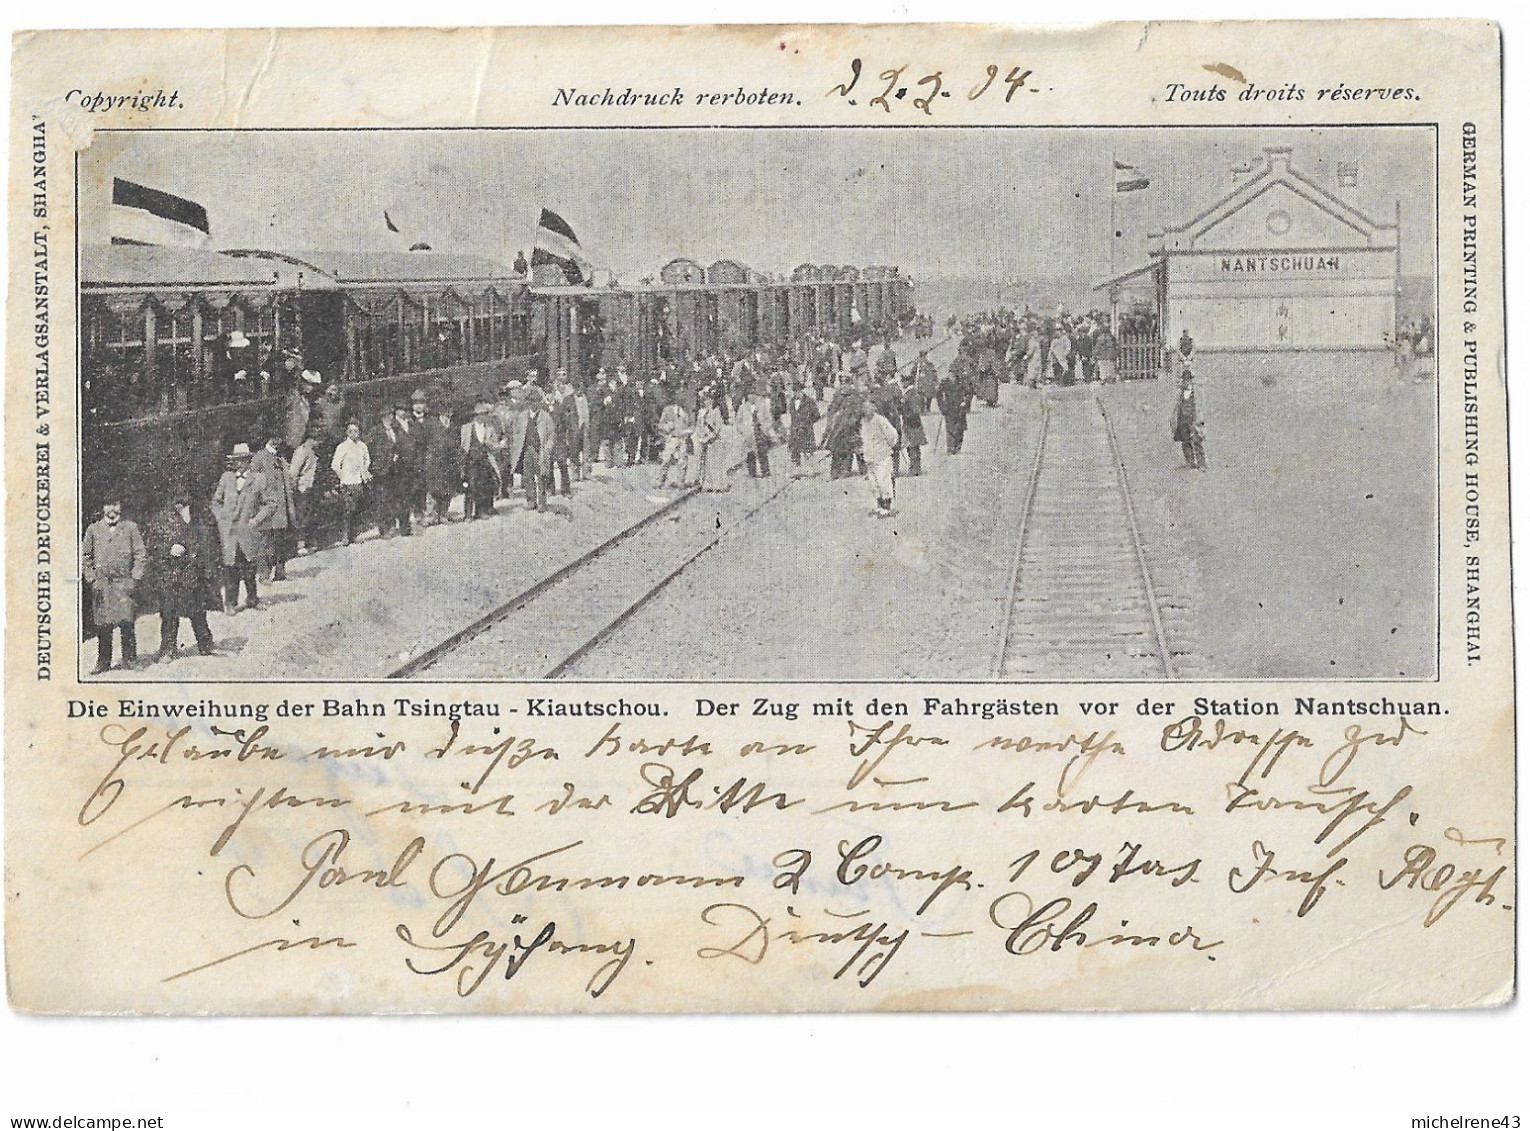 Copyright. Nachdruck rerboten. d. 2. 2. 04. Touts droits réserves.
DEUTSCHE DRUCKEREI & VERLAGSANSTALT, SHANGHA
GERMAN PRINTING & PUBLISHING HOUSE, SHANGHAI.
NANTSCHUAN
Die Einweihung der Bahn Tsingtau - Kiautschou. Der Zug mit den Fahrgästen vor der Station Nantschuan.
Erlaube mir diese Karte an Ihre werthe Adresse zu
richten mit der Bitte um Karten Tausch.
Paul 2 Comp. 1 Ostas. Inf. Regt.
in Syfang. Deutsch - China.
michelrene43